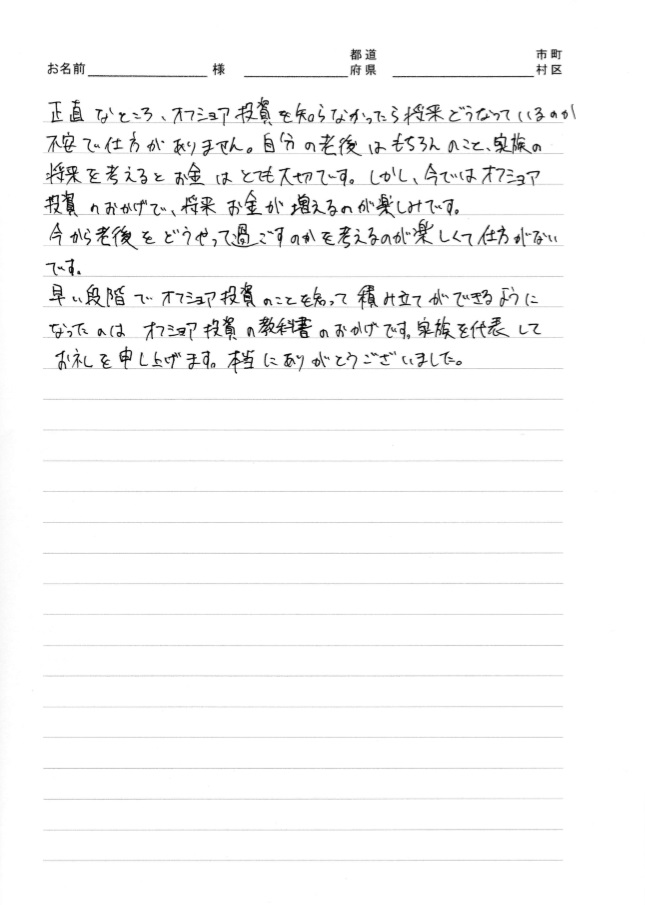 都道 市町
お名前 様 府県 村区
正直なところ、オフショア投資を知らなかったら将来どうなっているのか
不安で仕方がありません。自分の老後はもちろんのこと、家族の
将来を考えるとお金はとても大切です。しかし、今ではオフショア
投資のおかげで、将来お金が増えるのが楽しみです。
今から老後をどうやって過ごすのかを考えるのが楽しくて仕方がない
です。
早い段階でオフショア投資のことを知って積み立てができるように
なったのはオフショア投資の教科書のおかげです。家族を代表して
お礼を申し上げます。本当にありがとうございました。